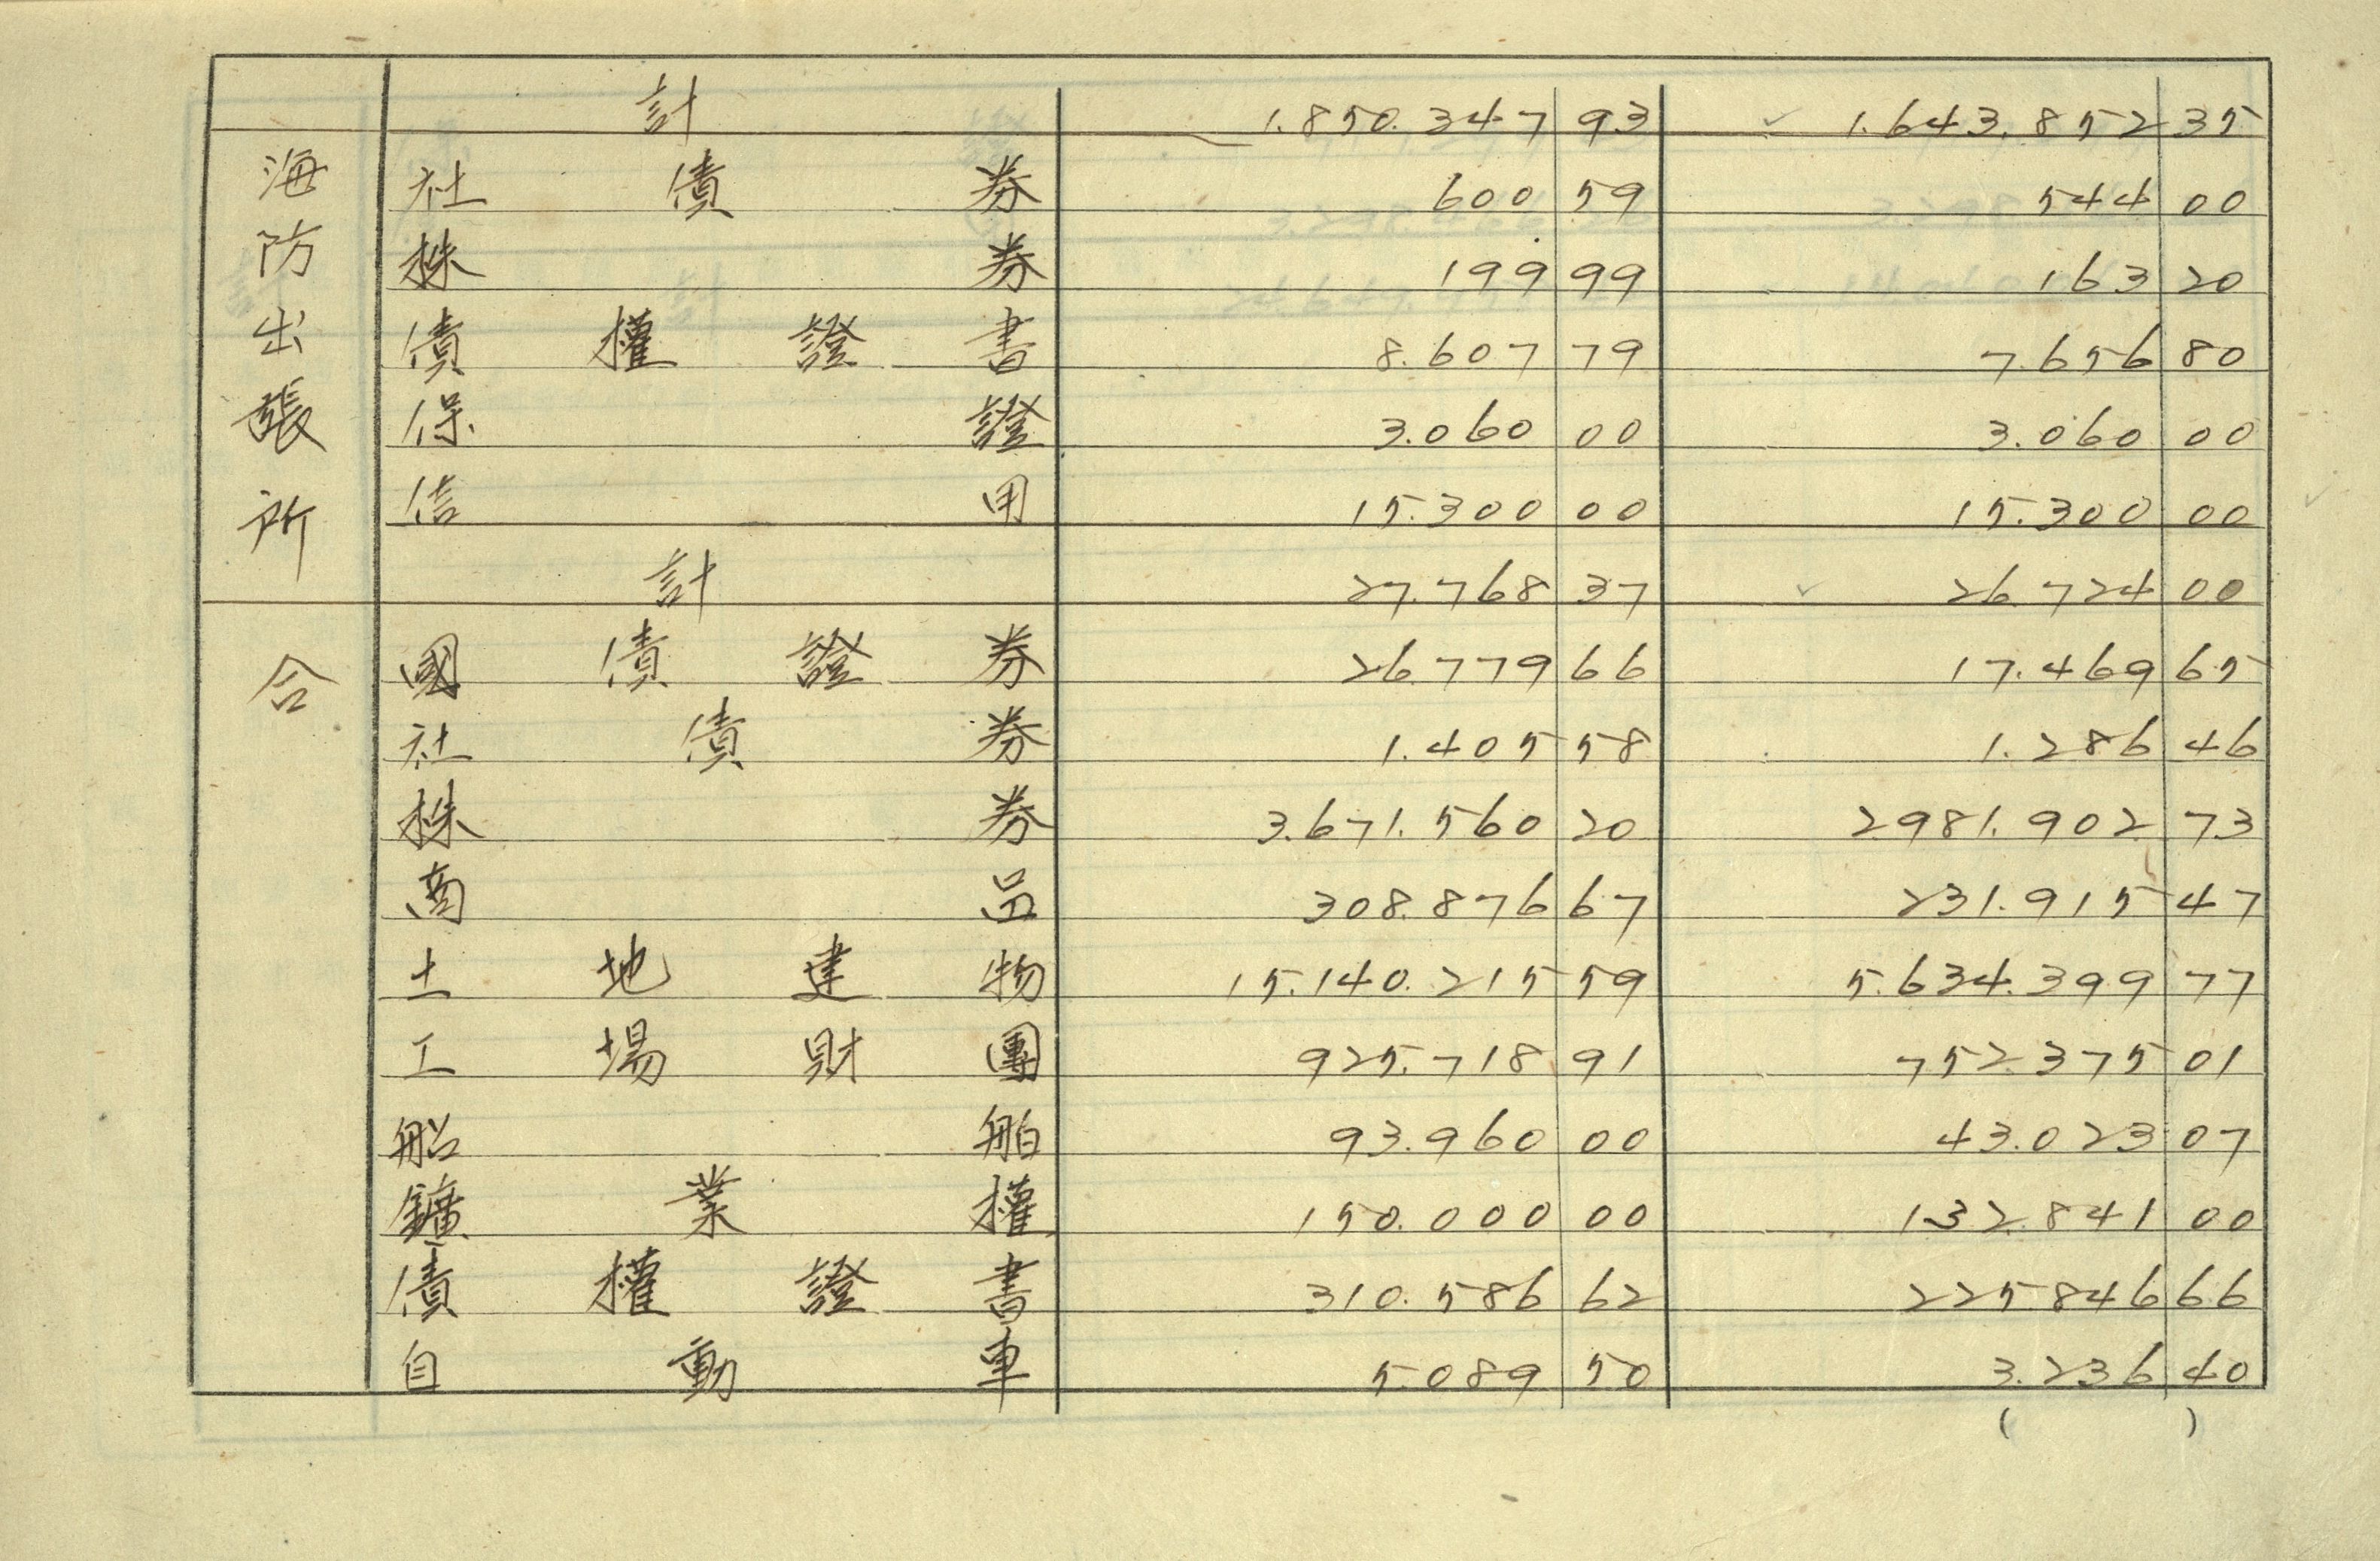 計 1.850.347 93 1.643.852 35
海防出張所 社債券 600 59 544 00
株券 199 99 163 20
債權證書 8.607 79 7.656 80
保證 3.060 00 3.060 00
信用 15.300 00 15.300 00
計 27.768 37 26.724 00
合 國債證券 26.779 66 17.469 65
社債券 1.405 58 1.286 46
株券 3.671.560 20 2.981.902 73
商品 308.876 67 231.915 47
土地建物 15.140.215 59 5.634.399 77
工場財團 925.718 91 752.375 01
船舶 93.960 00 43.023 07
鑛業權 150.000 00 132.841 00
債權證書 310.586 62 225.846 66
自動車 5.089 50 3.236 40
( )